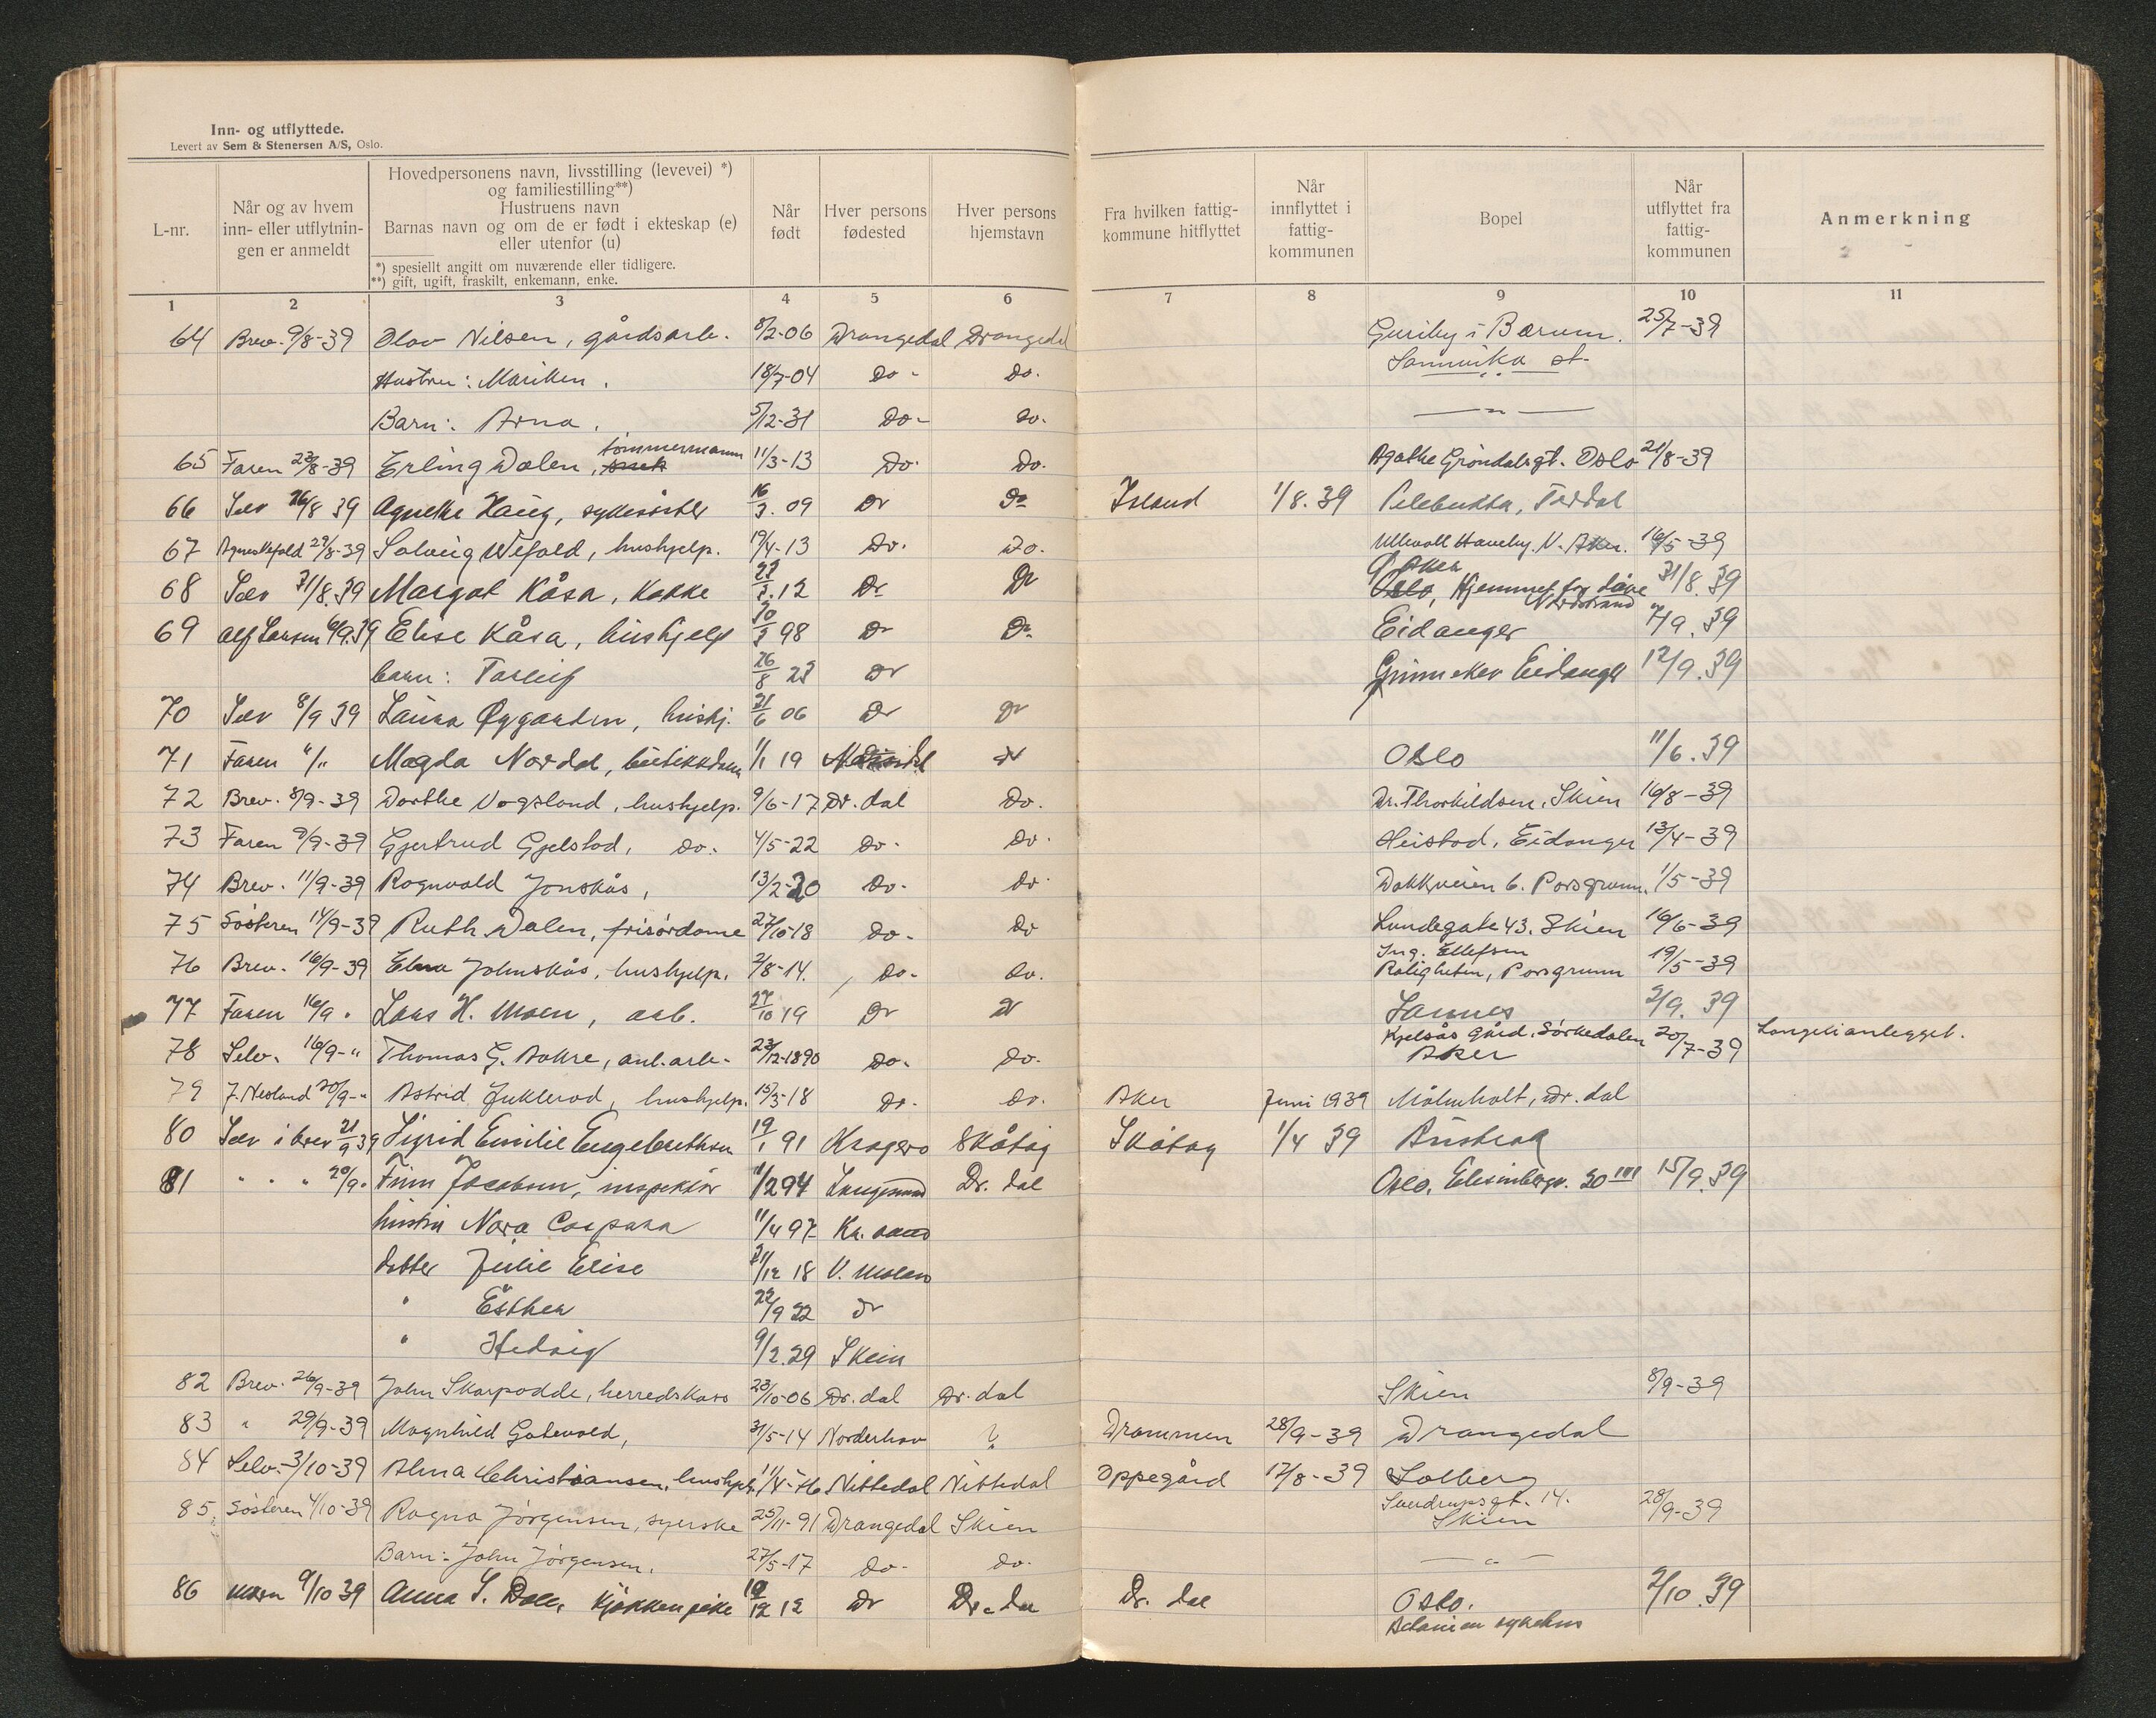 Inn- og utflyttede.
Levert av Sem & Stenersen A/S, Oslo.
L-nr.
Når og av hvem inn- eller utflytnin- gen er anmeldt
Hovedpersonens navn, livsstilling (levevei) *)
og familiestilling**)
Hustruens navn
Barnas navn og om de er født i ekteskap (e)
eller utenfor (u)
*) spesiellt angitt om nuværende eller tidligere.
**) gift, ugift, fraskilt, enkemann, enke.
Når født
Hver persons fødested
Hver persons hjemstavn
Fra hvilken fattig- kommune hitflyttet
Når innflyttet i fattig- kommunen
Bopel
Når utflyttet fra fattig- kommunen
Anmerkning
1 2 3 4 5 6 7 8 9 10 11
64 Brev. 9/8-39 Olav Nilsen, gårdsarb. 8/2-06 Drangedal Drangedal Guriby i Bærum. 25/7-39
Hustru: Mariken. 18/7-04 Do- Do. st.
Barn: Arna. 5/12-31 Do- Do. — " —
tømmermann
65 Faren 23/8-39 Erling Dalen, 11/3-13 Do. Do. Agathe Grøndalsgt. Oslo 21/8-39
66 Selv 26/8 39 Agnethe Haug, sykesøster 16/3. 09 Dr Do Island 1/8. 39 Pilebukta, Tørdal
67 29/8-39 Solveig Wefald, hushjelp. 19/4-13 Do. Do. Ullevoll Haveby. V. Aker. 16/5-39
Aker
68 Selv 31/8.39 Margot Kåsa, Kokke 23/3.12 Dr Dr Oslo, Hjemmet for døve 31/8.39
Nordstrand
69 Alf Larsen 6/9.39 Elise Kåsa, hushjelp 30/3 98 Dr Dr Eidanger 7/9.39
barn: Torleif 26/8 23 Dr Eidanger 12/9.39
70 Selv 8/9 39 Laura Øygarden, hushj. 21/6 06 Dr Dr
71 Faren "/" Magda Nordal, butikkdame 1/1 19 Dr Oslo 11/6.39
72 Brev. 8/9-39 Dorthe Vogsland, hushjelp. 9/6-17 Dr. dal Do. Dr. Thorkildsen, Skien 16/8-39
73 Faren 9/9-39 Gjertrud Gjelstad, Do. 4/5-22 Do- Do. Heistad, Eidanger 13/4-39
74 Brev. 11/9-39 Rognvald Jonskås, 13/2-20 Do- Do. Dokkveien 6. Porsgrunn. 1/5-39
75 Søsteren 14/9-39 Ruth Dalen, frisørdame 27/10-18 Do- Do Lundegate 43. Skien 16/6-39
Ing. Ellefsen
76 Brev. 16/9-39 Elna Johnskås, hushjelp. 2/8-14. Do- Do. Roligheten, Porsgrunn 19/5-39
77 Faren 16/9 " Lars H. Moen, arb. 27/10 19 Dr Dr Sannes 2/9.39
Kjelsås gård. Sørkedalen
78 Selv. 16/9-" Thomas G. Aakre, anl.arb- 23/12-1890 Do. Do. Aker 20/7-39
79 J. Nesland 20/9-" Astrid Juklerød, hushjelp. 15/3-18 Do. Do. Aker Juni 1939 Målmholt, Dr. dal
80 Selv i brev 21/9 39 Sigrid Emilie Engebrethsen 19/1 91 Kragerø Skåtøy Skåtøy 1/4 39
81 " " " 20/9" Finn Jacobsen, inspektør 11/2 94 Langesund Dr. dal Oslo. 30 III 15/9.39
hustru Nora Caspara 11/4 97 Kr. sand
datter Julie Elise 31/12 18 V. Moland
" Esther 22/9 22 Dr
" Hedvig 9/2.29 Skien
82 Brev. 26/9-39 John Skarpodde, herredskass 23/10-06 Dr. dal Dr. dal Skien 8/9-39
83 " 29/9-39 Magnhild Gatevold, 31/5-14 Norderhov ? Drammen 28/9-39 Drangedal
84 Selv. 3/10-39 Alma Christiansen, hushjelp. Nittedal Nittedal Oppegård 17/8-39 Solberg
Sverdrupsgt. 14.
85. Søsteren 4/10-39 Ragna Jørgensen, syerske 25/11-91 Drangedal Skien Skien 28/9-39
Barn: John Jørgensen. 27/5-17 Do- Do. — " —
86 Moren 9/10 39 Anna S. Dalen Kjøkkenpike 19/12 12 Dr Dr. dal Dr. dal Oslo. 2/10.39
Betanien sykehus